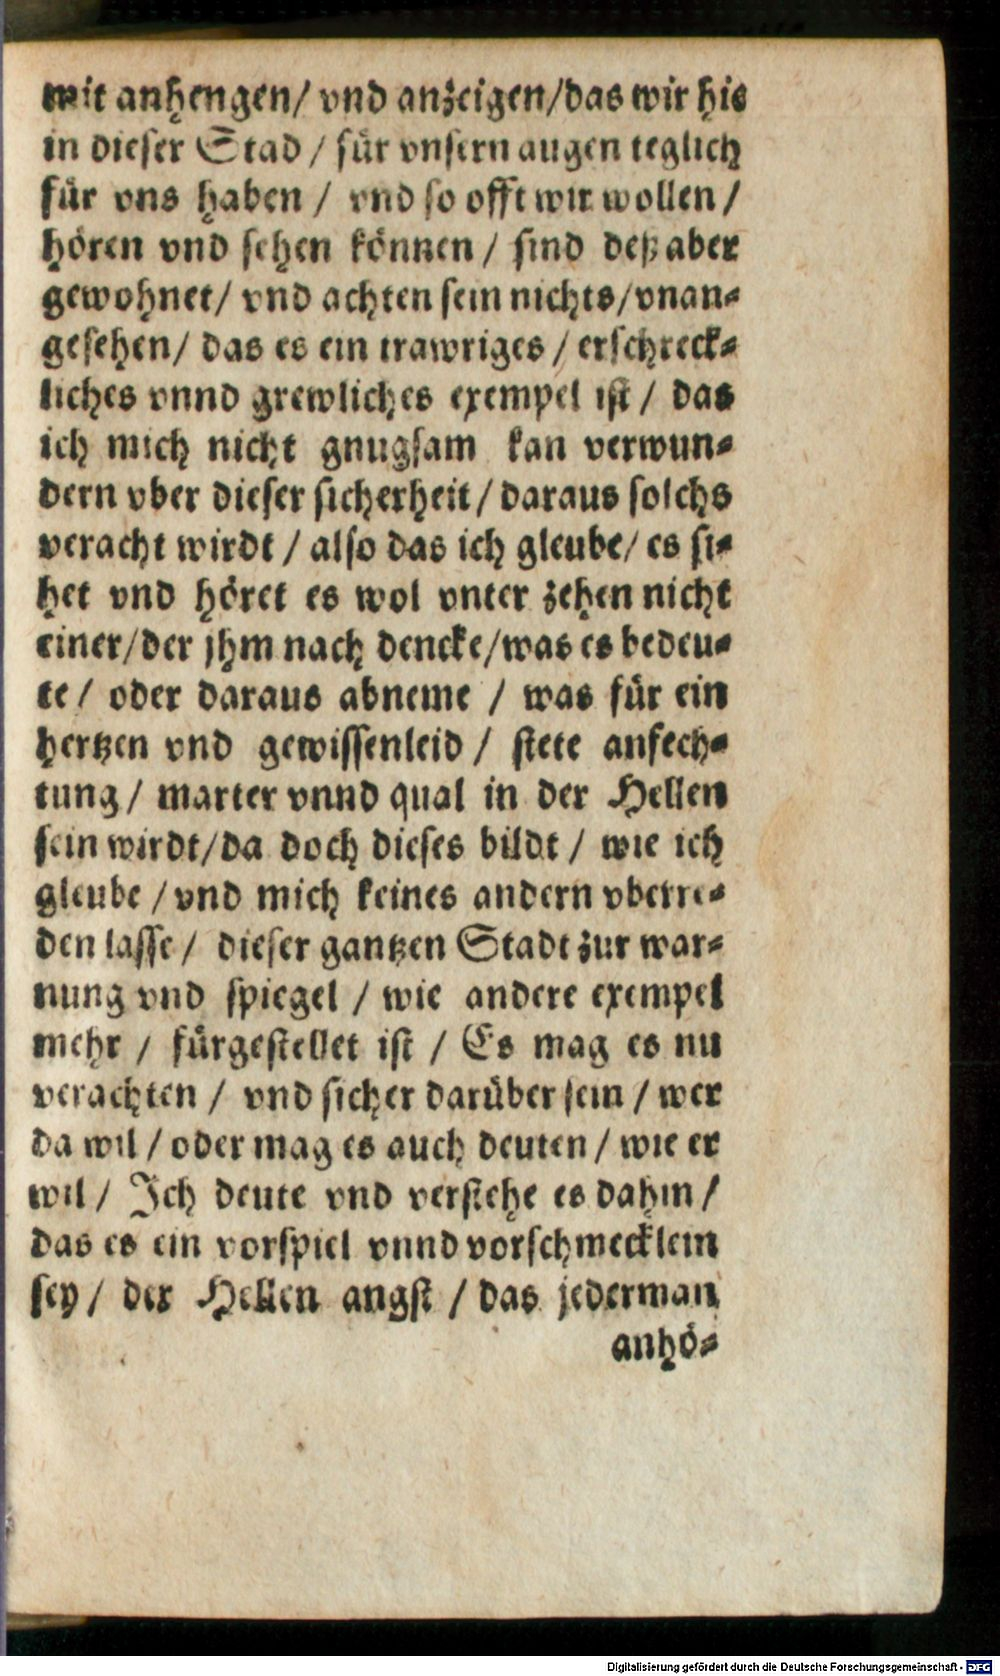 mit anhengen/ vnd anzeigen/das wir hie
in dieser Stad / für vnsern augen teglich
für vns haben / vnd so offt wir wollen /
hören vnd sehen können / sind deß aber
gewohnet/ vnd achten sein nichts/vnan-
gesehen/ das es ein trawriges / erschreck-
liches vnnd grewliches exempel ist / das
ich mich nicht gnugsam kan verwun-
dern vber dieser sicherheit/ daraus solchs
veracht wirdt / also das ich gleube/ es si-
het vnd höret es wol vnter zehen nicht
einer/der jhm nach dencke/was es bedeu-
te / oder daraus abneme / was für ein
hertzen vnd gewissenleid / stete anfech-
tung / marter vnnd qual in der Hellen
sein wirdt/da doch dieses bildt / wie ich
gleube / vnd mich keines andern vberre-
den lasse / dieser gantzen Stadt zur war-
nung vnd spiegel / wie andere exempel
mehr / fürgestellet ist / Es mag es nu
verachten / vnd sicher darüber sein / wer
da wil / oder mag es auch deuten / wie er
wil / Ich deute vnd verstehe es dahin /
das es ein vorspiel vnnd vorschmecklein
sey / der Hellen angst / das jederman
anhö-
Digitalisierung gefördert durch die Deutsche Forschungsgemeinschaft - DFG